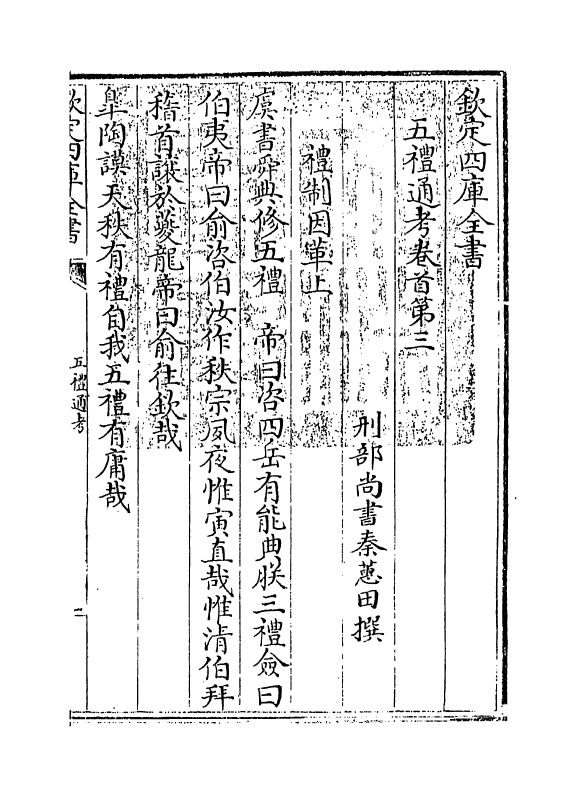 欽定四庫全書
五禮通考卷首第三
刑部尚書秦蕙田撰
禮制因革上
虞書舜典修五禮　帝曰咨四岳有能典朕三禮僉曰
伯夷帝曰俞咨伯汝作秩宗夙夜惟寅直哉惟清伯拜
稽首讓於夔龍帝曰俞往欽哉
臯陶謨天秩有禮自我五禮有庸哉
欽定四庫全書
五禮通考